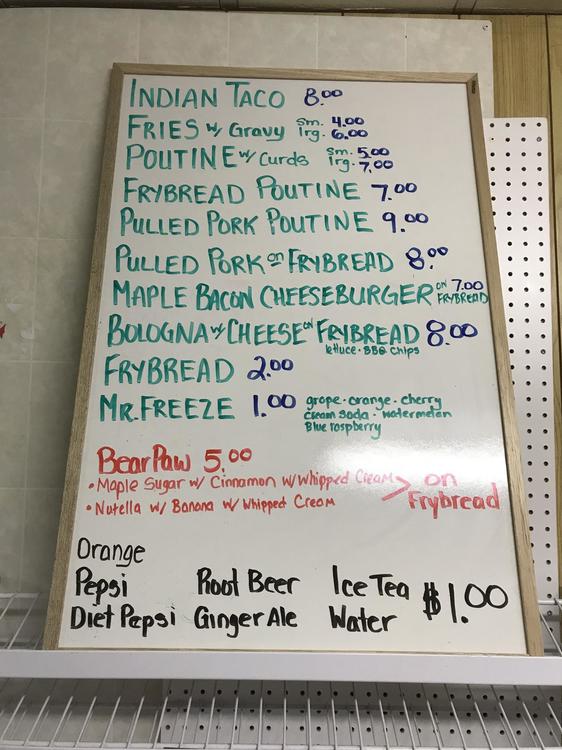 INDIAN TACO 8.00
FRIES w/ Gravy sm. 4.00
lrg. 6.00
POUTINE w/ Curds sm. 5.00
lrg. 7.00
FRYBREAD POUTINE 7.00
PULLED PORK POUTINE 9.00
PULLED PORK on FRYBREAD 8.00
MAPLE BACON CHEESEBURGER on FRYBREAD 7.00
BOLOGNA w/ CHEESE on FRYBREAD 8.00
lettuce · BBQ chips
FRYBREAD 2.00
MR. FREEZE 1.00 grape · orange · cherry
cream soda · watermelon
Blue raspberry
Bear Paw 5.00
• Maple Sugar w/ Cinnamon w/ Whipped Cream > on
• Nutella w/ Banana w/ Whipped Cream Frybread
Orange
Pepsi Root Beer Ice Tea $1.00
Diet Pepsi Ginger Ale Water